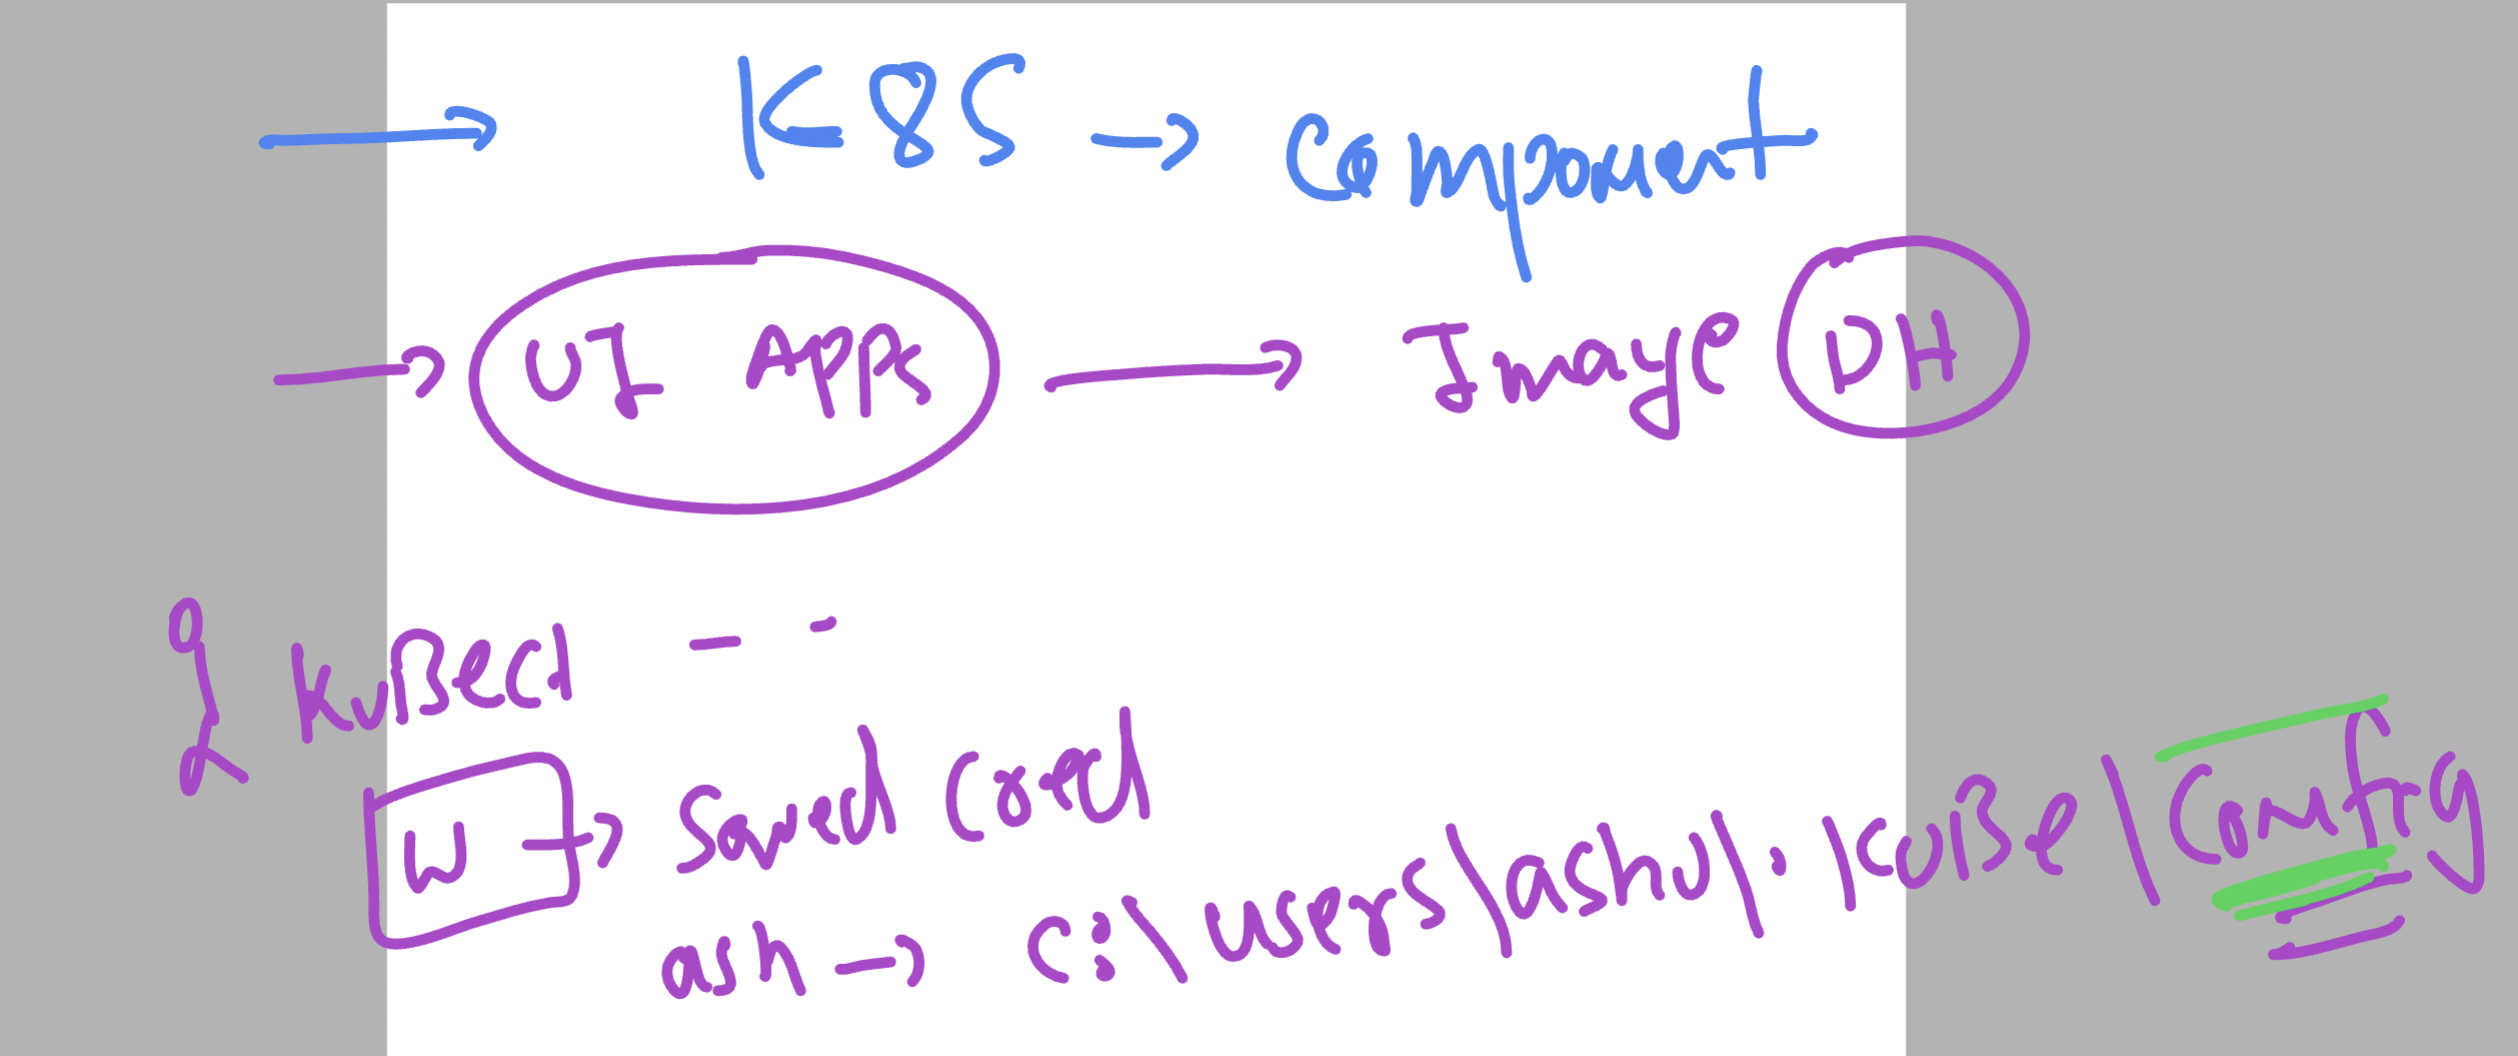 → K8S → Component
→ UI Apps → Image DH
KuBect - -
W → Saved Cred
ash → C:\users\ashu\.\Kube\Config